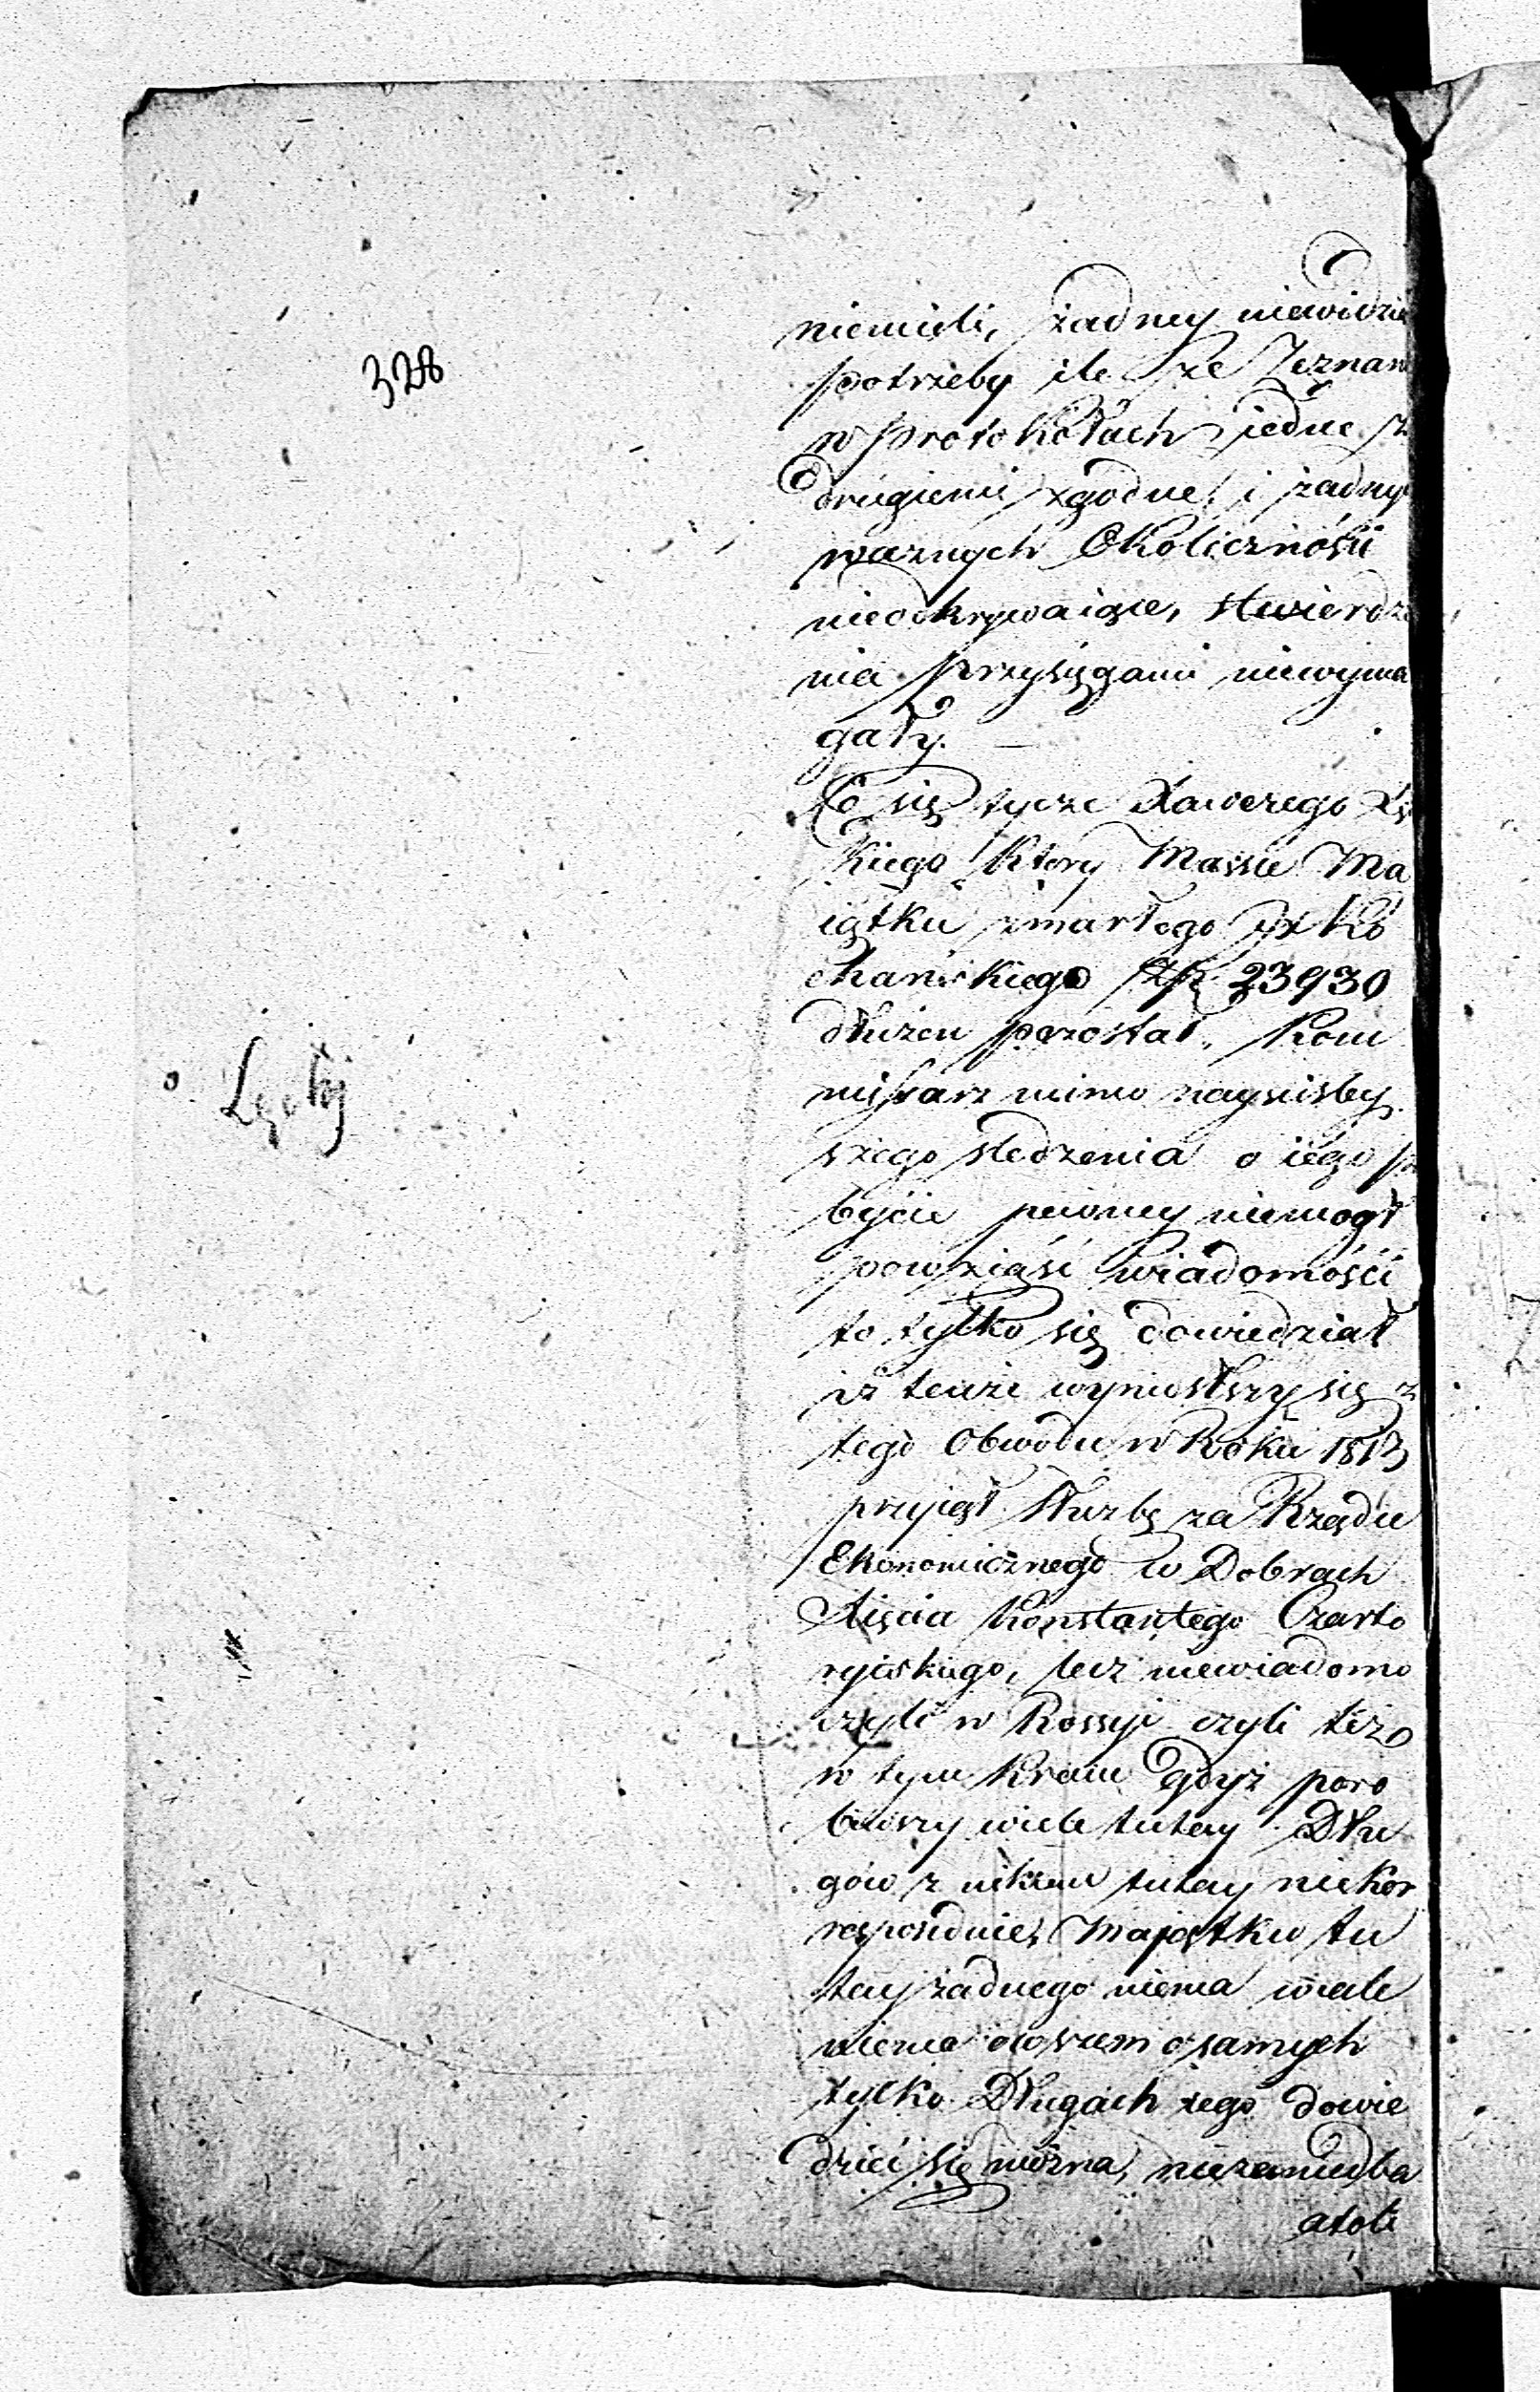 328
niemieli, żadney niewidzi
potrzeby ile że Zeznan
w protokołach jedne z
drugiemi zgodne, i żadny
ważnych Okoliczności
nieodkrywaiące, stwierdze
nia przysięgami niewyma
gały. —
Co się tycze Xawerego
kiego który Massie Ma
iątku zmarłego Ko
chańskiego 23930
dłużen pozostał, Kom
missarz mimo nayściśley
szego śledzenia o iego p
bycie pewney niemogł
powziąść wiadomości
to tylko się dowiedział
iż tenże wyniosłszy się z
tego Obwodu w Roku 1813
przyjął służbę za Rządu
Ekonomicznego w Dobrach
Xięcia Konstantego Czarto
ryiskiego, lecz niewiadomo
czyli w Rossyi czyli też
w tym Kraiu gdyż poro
biwszy wiele tutay Dłu
gów z nikim tutay niekor
responduie, Majątku tu
tay żadnego niema wcale
niema owszem o samych
tylko Długach iego dowie
dzieć się można, niezaniedba
atoli